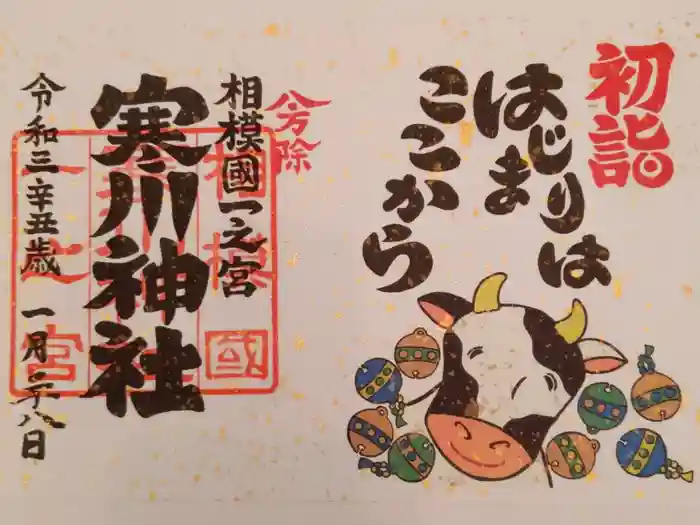 初詣
はじまりは
ここから
八方除
相模國一之宮
寒川神社
令和三辛丑歳 一月二十八日
相模國
一之宮